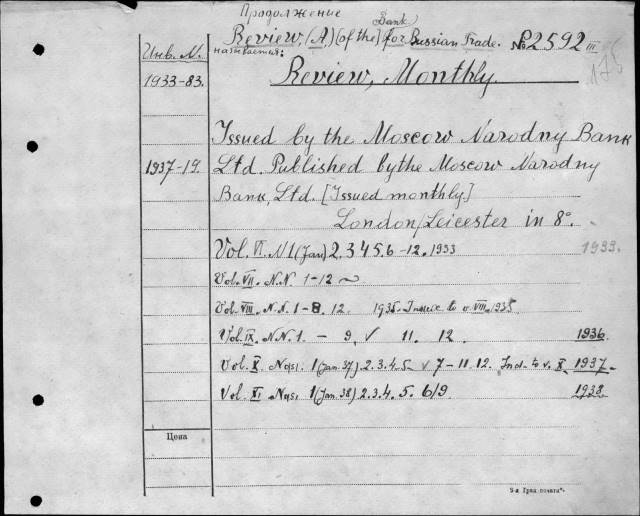 Продолжение
Bank
Review, (A) (of the) for Russian Trade. № P2592 III
называется:
Инв. №.
Review, Monthly.
175
1933-83.
Issued by the Moscow Narodny Bank
1937-19. Ltd. Published by the Moscow Narodny
Bank, Ltd. [Issued monthly]
London/Leicester in 8°.
Vol. VI. N 1 (Jan) 2.3.4.5.6-12. 1933 1933.
Vol. VII. N.N. 1-12
Vol. VIII. N.N. 1-8. 12. 1935 Index to v. VIII. 1935
Vol. IX. N.N. 1. - 9, v 11. 12. 1936
Vol. X. Nos: 1 (Jan. 37) 2.3.4.5 v 7-11.12. Ind. to v. X. 1937.
Vol. XI Nos, 1 (Jan. 38) 2.3.4.5. 6/9 1938.
Цена
5-я Град. печати".